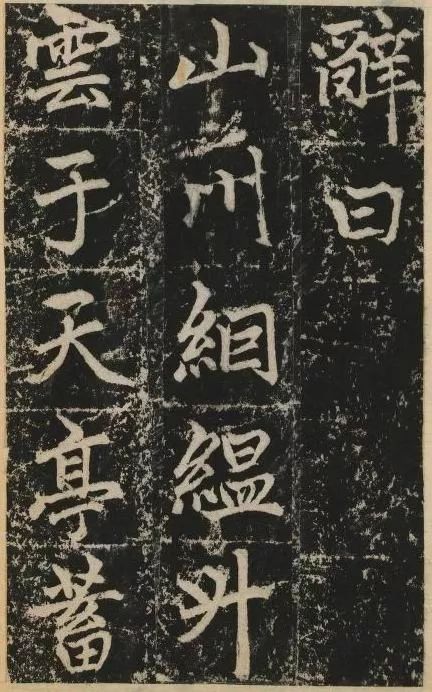 辭曰
山川絪縕升
雲于天亭蓄